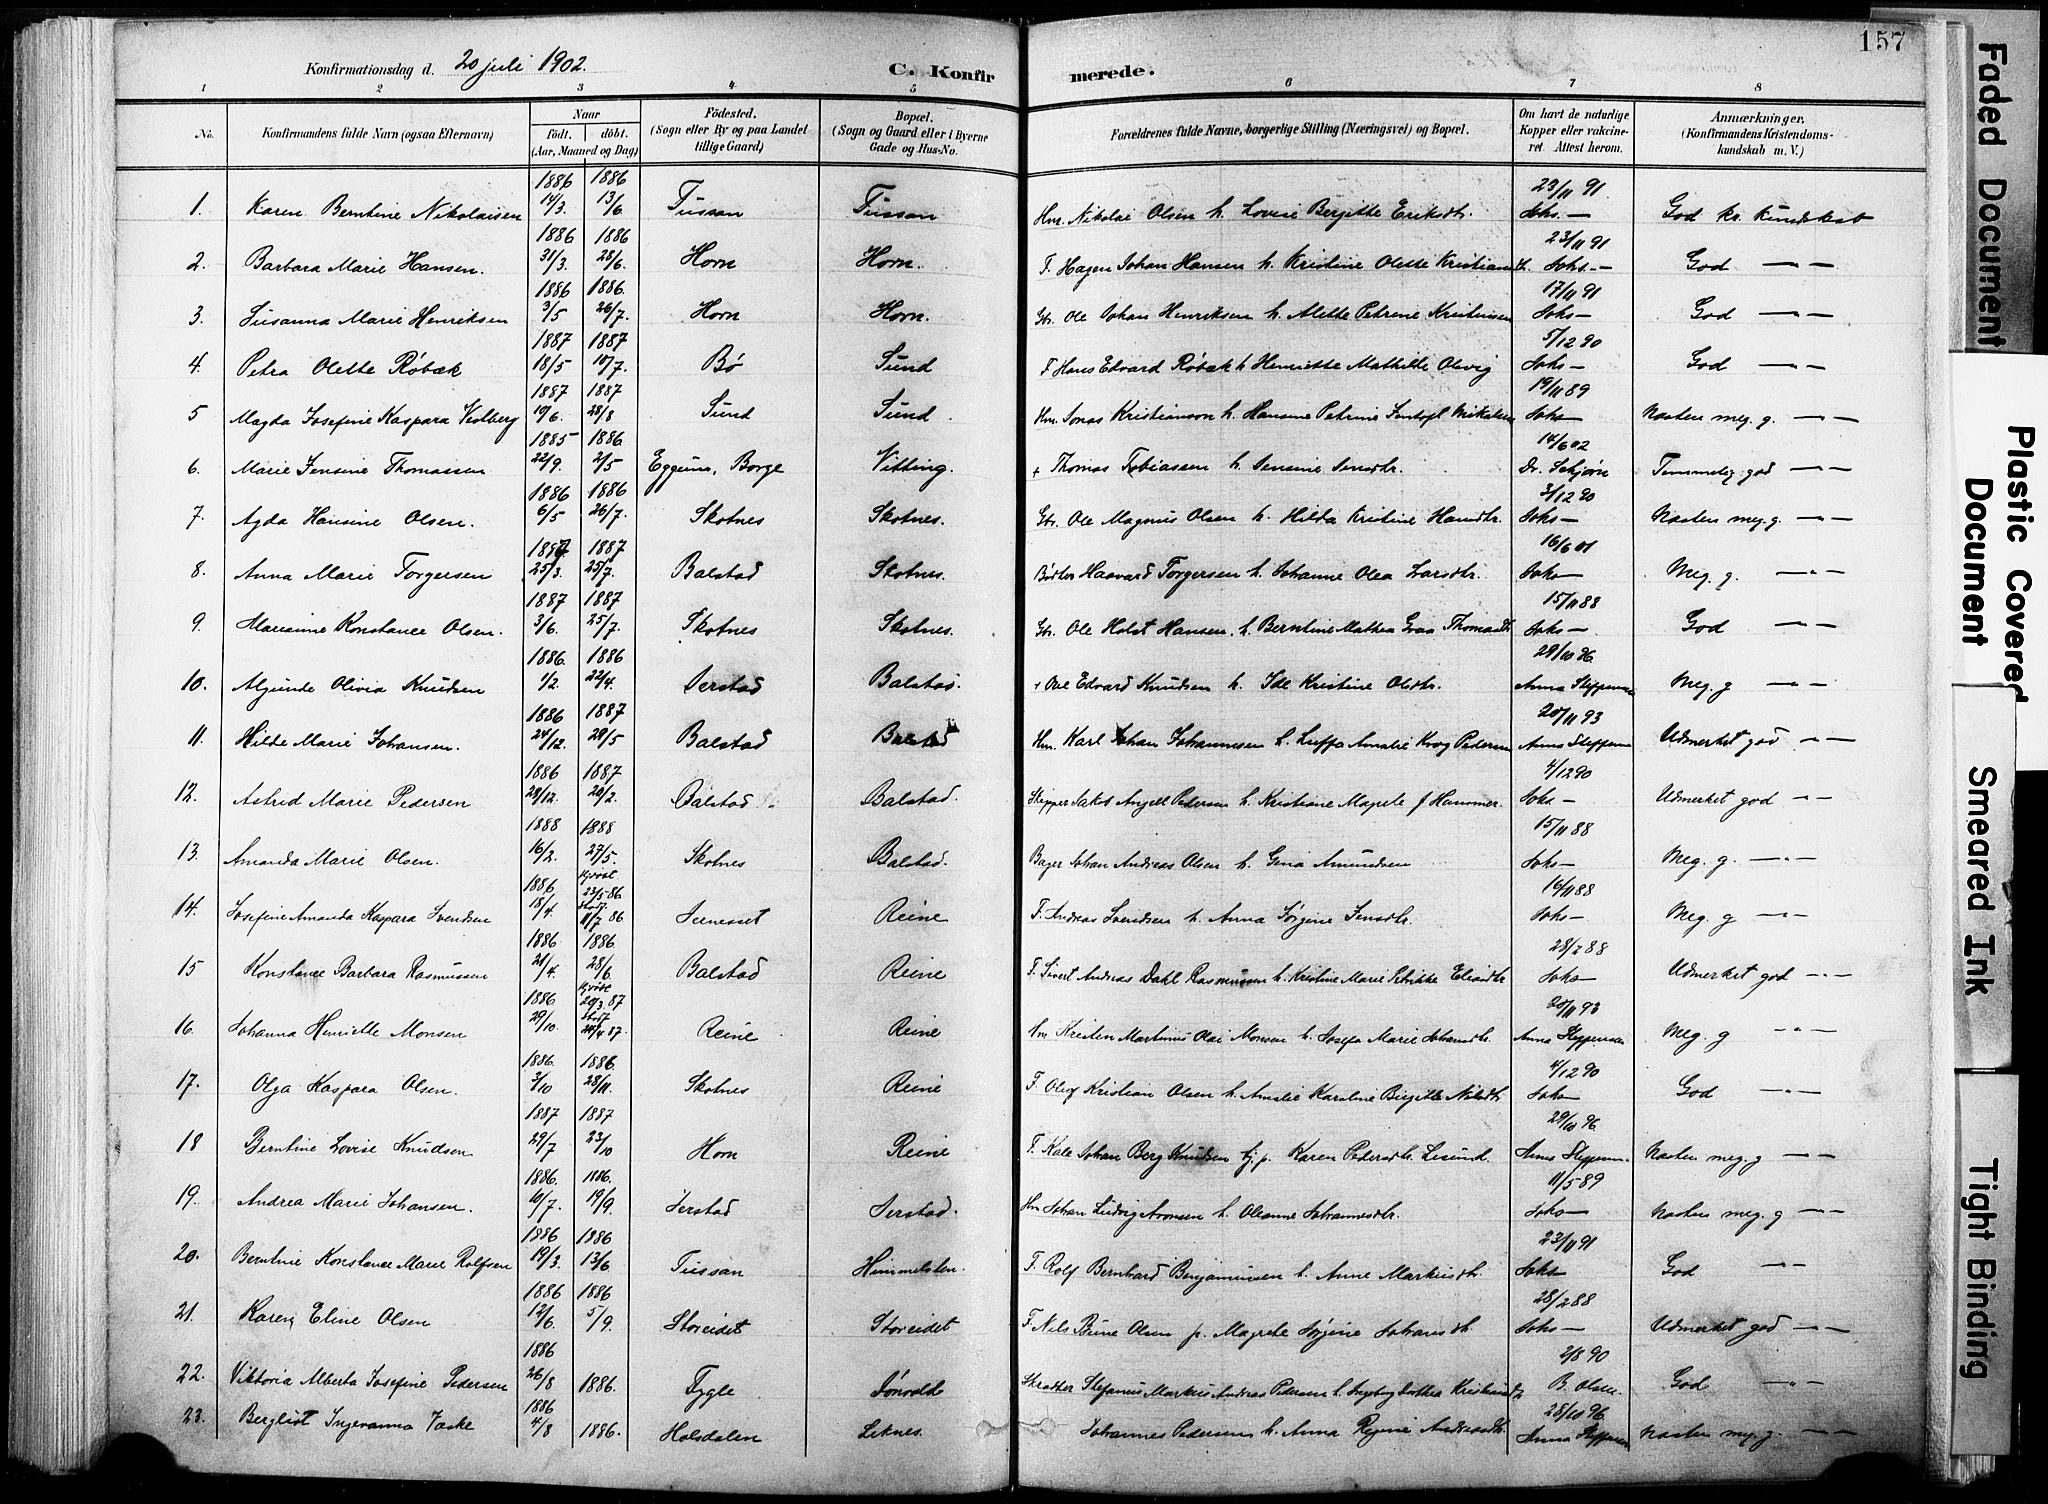 157
Konfirmationsdag d. 20 juli 1902. C. Konfirmerede.
1 2 3 4 5 6 7 8
No. Konfirmandens fulde Navn (ogsaa Efternavn) Naar født. døbt. (Aar, Maaned og Dag) Fødested. (Sogn eller By og paa Landet tillige Gaard) Bopæl. (Sogn og Gaard eller i Byerne Gade og Hus-No. Forældrenes fulde Navne, borgerlige Stilling (Næringsvei) og Bopæl. Om havt de naturlige Kopper eller vakcineret Attest herom. Anmærkninger, (Konfirmandens Kristendomskundskab m. V.)
1. Karen Berntine Nikolaisen 1886 14/3. 1886 13/6 Tussan Tussan Hm. Nikolai Olsen h. Lovise Bergitte Eriksdtr. 23/11 91 Joks— God kr. kundskab
2. Barbara Marie Hansen. 1886 31/3. 1886 28/6. Horn Horn. F. Hagen Johan Hansen h. Kristine Olette 23/11 91 Joks.— God — " —
3. Susanna Marie Henriksen 1886 3/5 1886. 26/7. Horn Horn. Gbr. Ole Johan Henriksen h. Alette Petrine Kristensen 17/11 91 Joks— God — " —
4. Petra Olette Röbæk 1887 18/5 1887 10/7. Bö Sund F Hans Edvard Röbæk h Henriette Mathilde 5/12 90 Joks— God — " —
5 Magda Josefine Kaspara 1887 19/6. 1887 28/8 Sund Sund. Hm. Jonas h. Hansine Petrine 19/11 89 Joks— Næsten meg. g. — " —
6. Marie Jensine Thomassen 1885 22/9. 1886 2/5 Eggum, Borge Vitting. + Thomas Tobiassen h. Jensine Jensdtr. 14/6 02 Dr. Temmelig god — " —
7. Agda Hansine Olsen. 1886 6/5 1886 26/7. Skotnes Skotnes. Gbr. Ole Magnus Olsen h. Hilda Kristine Hansdtr. 3/12 90 Joks— Næsten meg. g. — " —
8. Anna Marie Torgersen 1887 25/3. 1887 25/7. Balstad Skotnes. Haavard Torgersen h. Johanne Olea Larsdtr. 16/6 01 Joks— Meg. g. — " —
9. Marianne Konstance Olsen. 1887 3/6. 1887 25/7. Skotnes Skotnes. Gbr. Ole Holst Hansen. h. Berntine Mathea Graa 15/11 88 Joks— God — " —
10. Algunde Olivia Knudsen 1886. 1/2. 1886 22/4. Jerstad Balstad. + Edvard Knudsen h. Ide Kristine Olsdtr. 29/10 96 Anna Meg. g — " —
11. Hilde Marie Johansen. 1886 24/12. 1887 29/5 Balstad Balstad Hm. Karl Johan Johannesen h. Amalie Krog Pedersen 20/11 93 Anna Udmerket god — " —
12. Astrid Marie Pedersen 1886 29/12. 1887 20/2. Balstad Balstad. Skipper Jakob Angell Pedersen h. Kristiane f Hammer. 4/12 90 Joks — Udmerket god — " —
13. Amanda Marie Olsen. 1888 16/2. 1888 27/5. Skotnes Balstad. Bager Johan Andreas Olsen h. Gina Amundsen 15/11 88 Joks— Meg. g. — " —
14. Josefine Amanda Kaspara Svendsen 1886 18/4. 23/5 86 11/7 86 Reine F. Andreas Svendsen h. Anna Jensdtr. 16/11 88 Joks— Meg. g — " —
15 Konstance Barbara Rasmussen 1886 21/4. 1886. 28/6. Balstad Reine F. Sivert Andreas Dahl Rasmussen h. Kristine Marie Petrikke 28/2 88 Joks— Udmerket god — " —
16. Johanna Henriette Monsen 1886 29/10. 20/3. 87 24/4 87. Reine Reine Hm Kristen Martinus Olai Monsen h. Josefa Marie Johansdtr. 20/11 93 Anna Meg. g — " —
17. Olga Kaspara Olsen. 1886. 3/10 1886. 28/11. Skotnes Reine F. Oluf Kristian Olsen h. Amalie Karoline Birgitte 4/12 90 Joks— God — " —
18 Berntine Lovise Knudsen 1887 29/7 1887 23/10 Horn Reine F. Kale Johan Berg Knudsen Karen Pedersdtr. 29/10 96 Næsten meg. g — " —
19. Andrea Marie Johansen. 1886. 10/7. 1886. 19/9. Jerstad Jerstad. Hm Johan Ludvig Aronsen h. Oleanne Johannesdtr. 11/5 89 Joks— Næsten meg. g — " —
20. Berntine Konstance Marie Rolfsen 1886 19/3. 1886 13/6 Tussan Himmelsten. F. Rolf Bernhard Benjaminsen h. Anne Markusdtr. 23/11 91 Joks— God — " —
21. Karen Eline Olsen 1886 12/6. 1886 5/9. Storeidet Storeidet F. Nils Olsen Magrete Johansdtr. 28/2 88 Joks— Udmerket god — " —
22. Viktoria Alberta Josefine Pedersen 1886 26/8 1886. Fygle Skrædder Stefanus Markus Andreas Pedersen h. 2/8 90 B. Olsen. God — " —
23. Bergliot Ingevanna 1886 4/8 1886. Holsdalen Leknes. Johannes Pedersen h. Anna Regine 28/10 96 Anna Næsten meg. g. — " —
Faded Document
Plastic Covered Document
Smeared Ink
Tight Binding